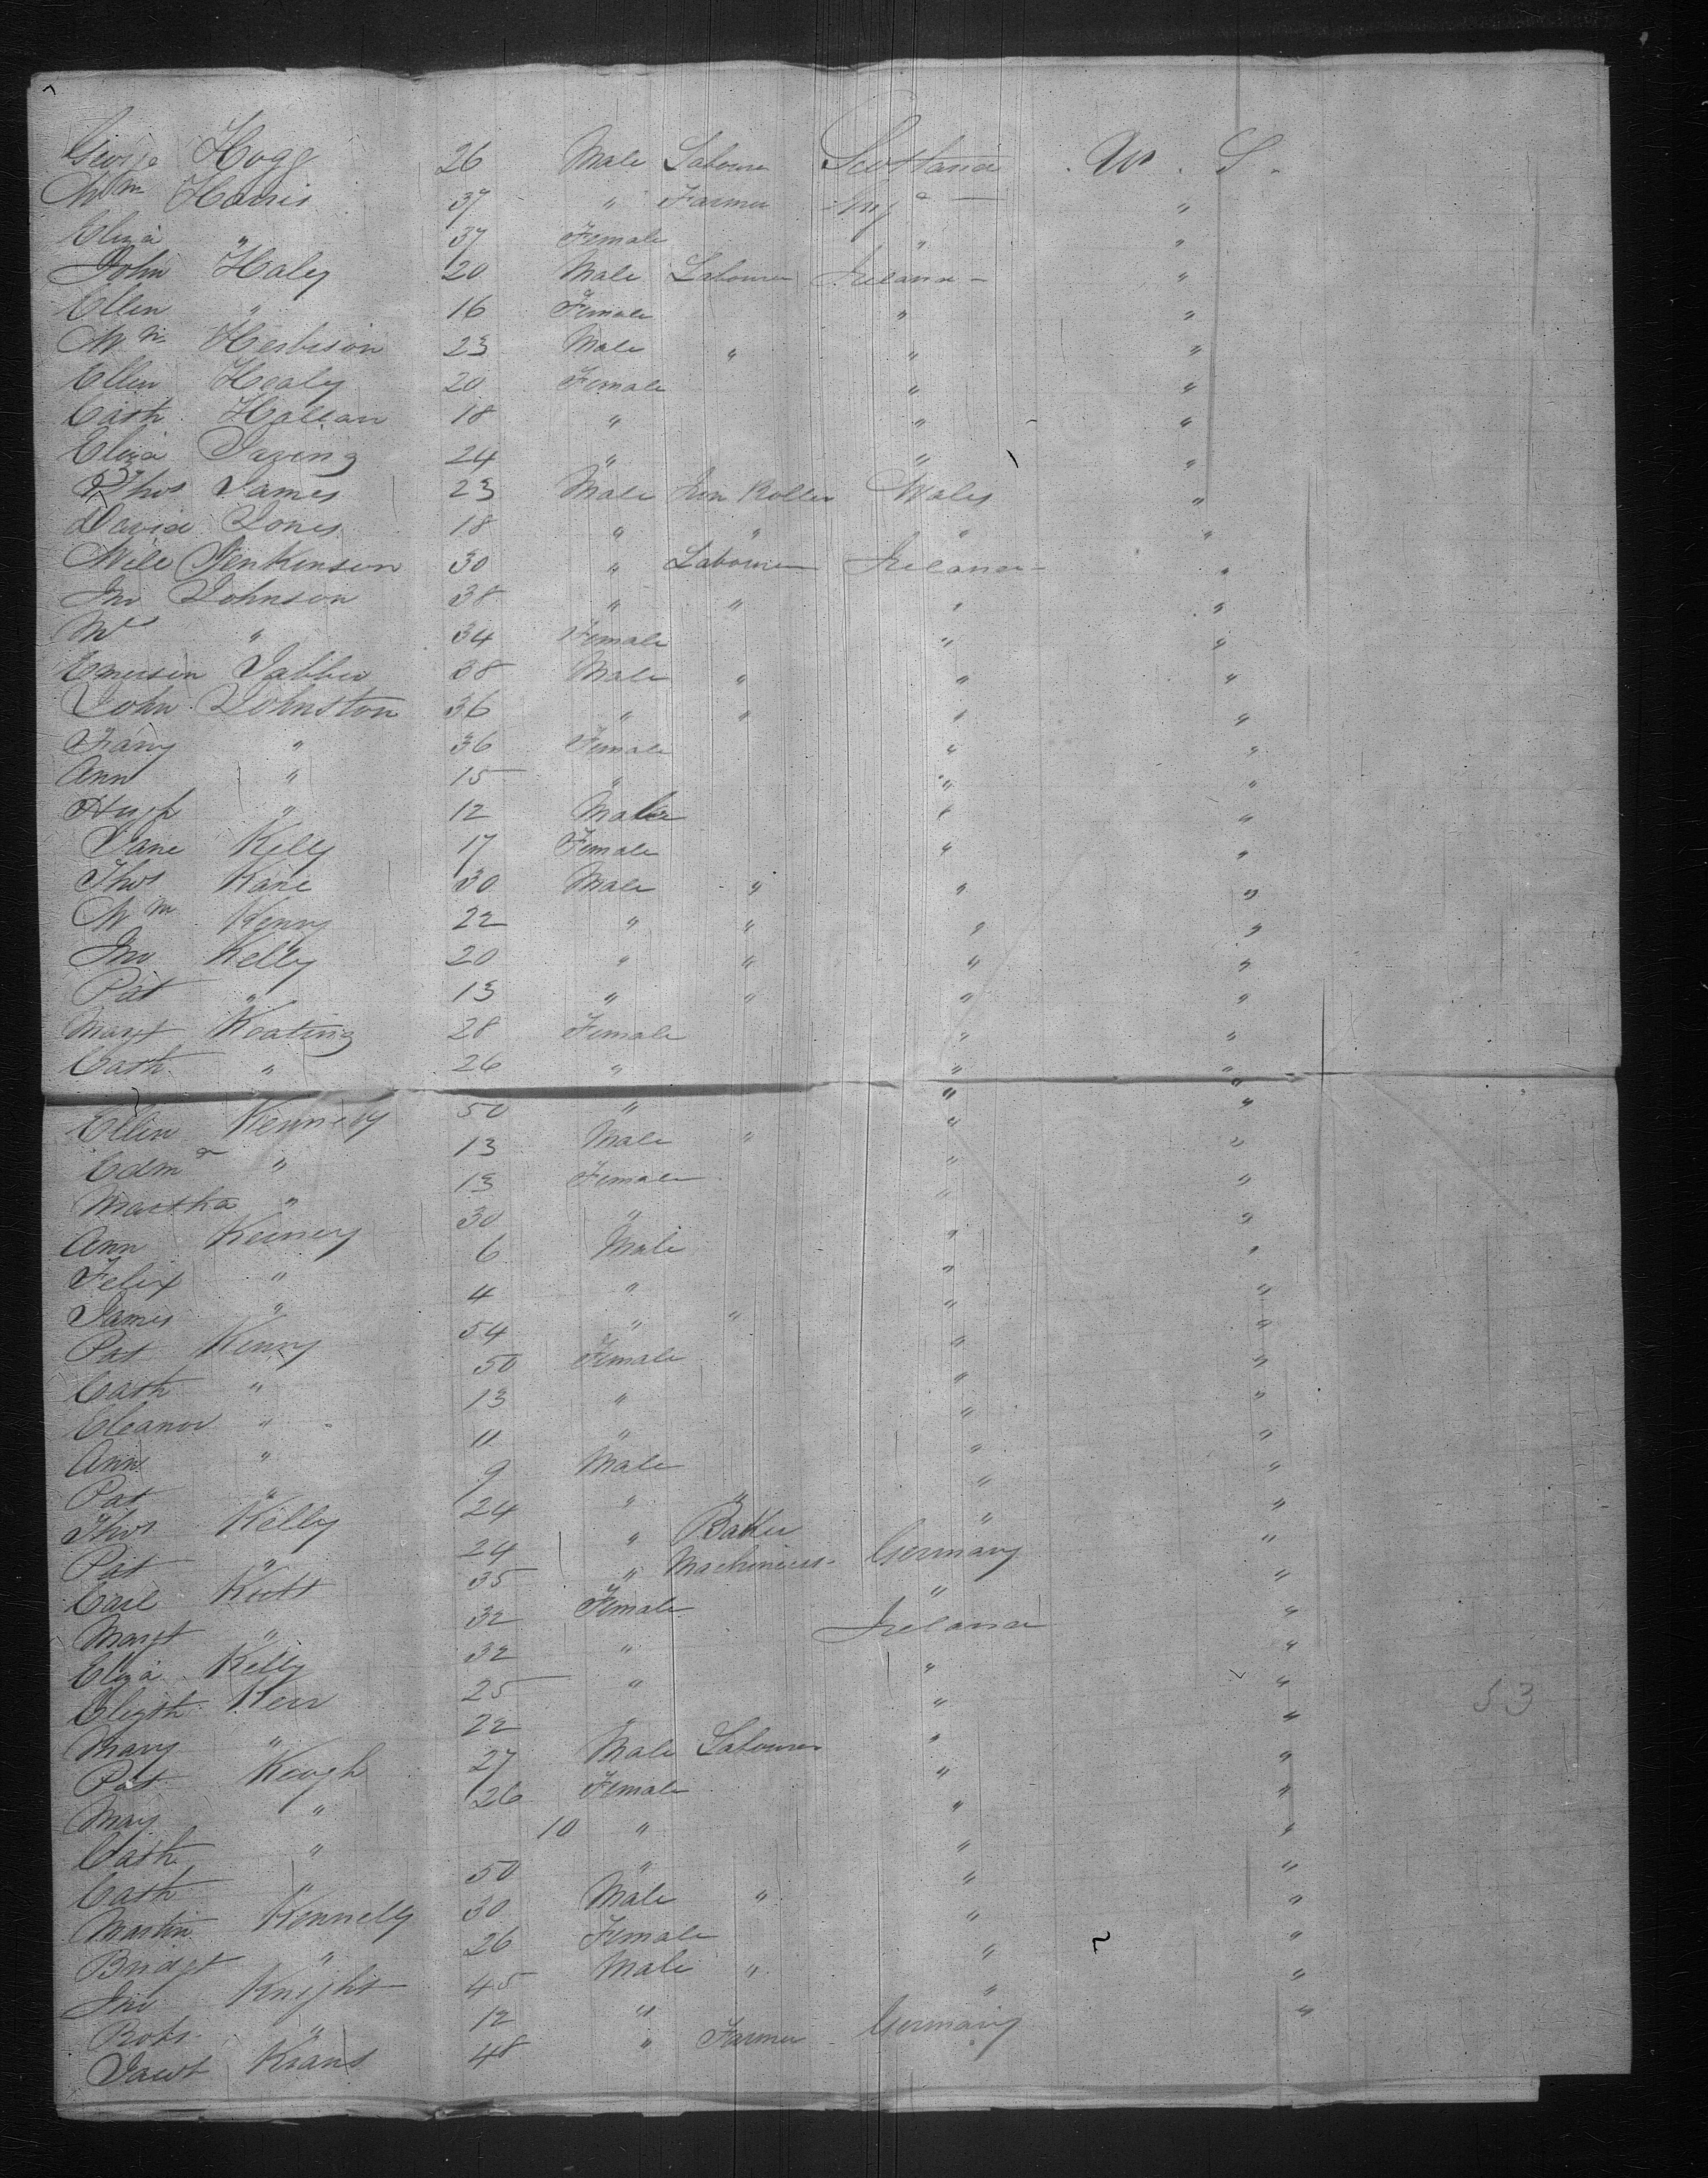 George Hogg 26 Male Labourer Scotland . U . S .
Wm Harris 37 " Farmer Engd — "
Eliza " 37 Female " "
John Haley 20 Male Labourer Ireland - "
Ellen " 16 Female " "
Wm Herbison 23 Male " " "
Ellen Healy 20 Female " "
Cath Hallan 18 " " "
Eliza Irving 24 " " "
Thos James 23 Male Iron Roller Wales "
David Jones 18 " " " "
Will Jenkinson 30 " Labourer Ireland - "
Jno Johnson 38 " " " "
Mrs " 34 Female " "
Emerson 38 Male " " "
John Johnston 36 " " " "
Fany " 36 Female " "
Ann " 15 " " "
Hugh " 12 Male " "
Jane Kelly 17 Female " "
Thos Kane 30 Male " " "
Wm Kenny 22 " " " "
Jno Kelly 20 " " " "
Pat " 13 " " " "
Margt Keating 28 Female " "
Cath " 26 " " "
Ellen Kennedy 50 " " "
Edmd " 13 Male " " "
Martha " 13 Female " "
Ann Keirney 30 " " "
Felix " 6 Male " "
James " 4 " " "
Pat Kenny 54 " " " "
Cath " 50 Female " "
Eleanor " 13 " " "
Ann " 11 " " "
Pat " 9 Male " "
Thos Kelly 24 " " " "
Pat " 24 " Baker " "
Carl 35 " Machinist Germany "
Margt " 32 Female " "
Eliza Kelly 32 " Ireland "
Elizth Kerr 25 " " "
Mary " 22 " " "
Pat Keogh 27 Male Labourer " "
Mary " 26 Female " "
Cath " 10 " " "
Cath " 50 " " "
Martin Kennelly 30 Male " " "
Bridgt " 26 Female " "
Jno Knight 45 Male " " "
Robt " 12 " " "
Jacob Krans 48 " Farmer Germany "
53